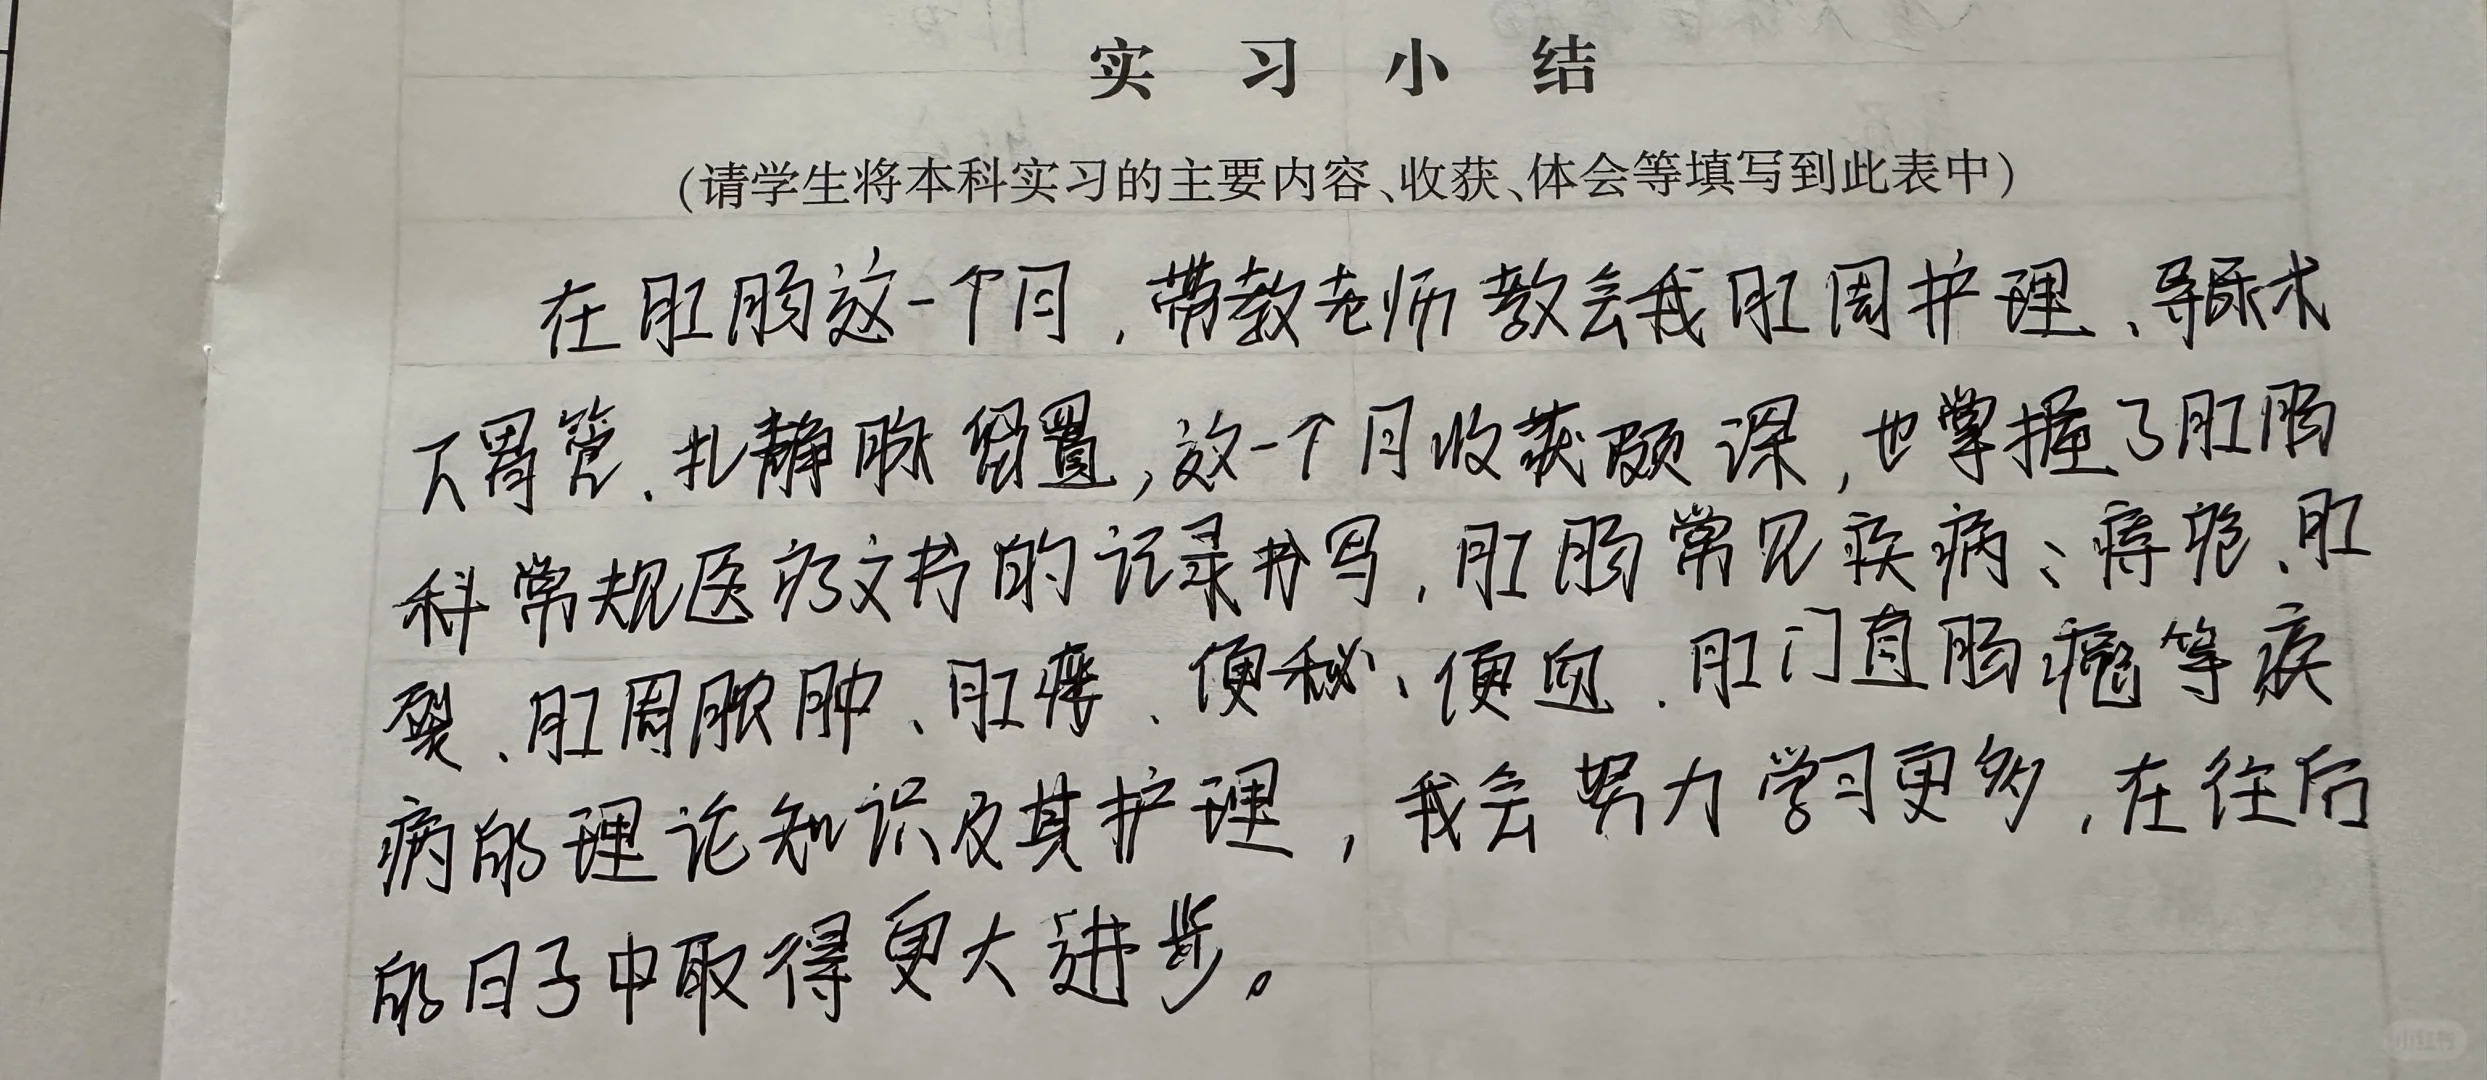 实习小结
(请学生将本科实习的主要内容、收获、体会等填写到此表中)
在肛肠这一个月,带教老师教会我肛周护理、导尿术
下胃管、扎静脉留置,这一个月收获颇深,也掌握了肛肠
科常规医疗文书的记录书写,肛肠常见疾病:痔疮、肛
裂、肛周脓肿、肛瘘、便秘、便血、肛门直肠癌等疾
病的理论知识及其护理,我会努力学习更多,在往后
的日子中取得更大进步。
小红书